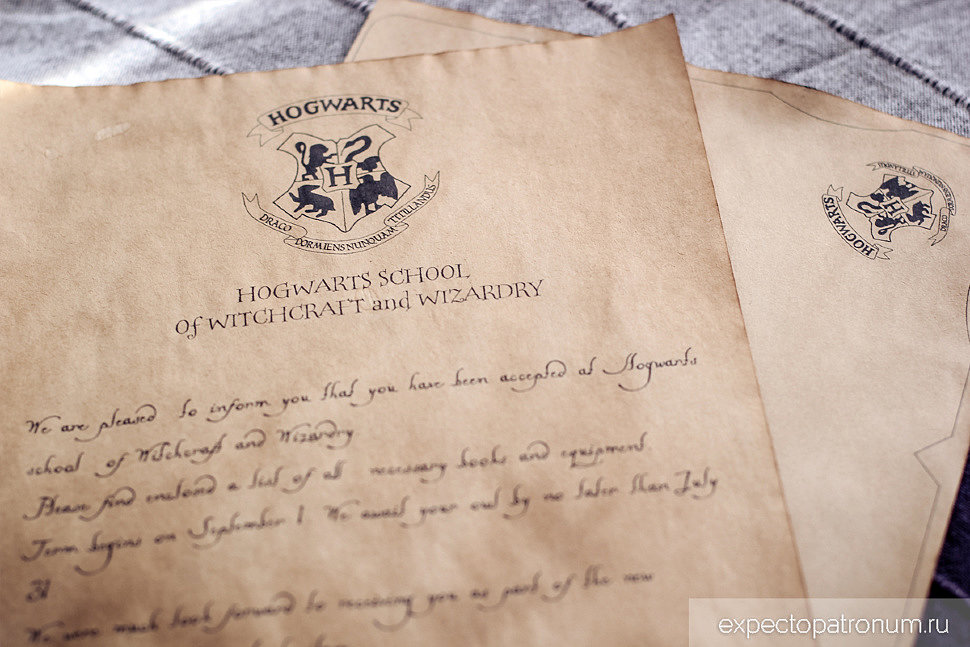 HOGWARTS
H
DRACO DORMIENS NUNQUAM TITILLANDUS
HOGWARTS SCHOOL
of WITCHCRAFT and WIZARDRY
We are pleased to inform you that you have been accepted at Hogwarts
school of Witchcraft and Wizardry
Please find enclosed a list of all necessary books and equipment.
Term begins on September 1 We await your owl by no later than July
31
We very much look forward to receiving you as part of the new
HOGWARTS
H
DRACO DORMIENS NUNQUAM TITILLANDUS
expectopatronum.ru